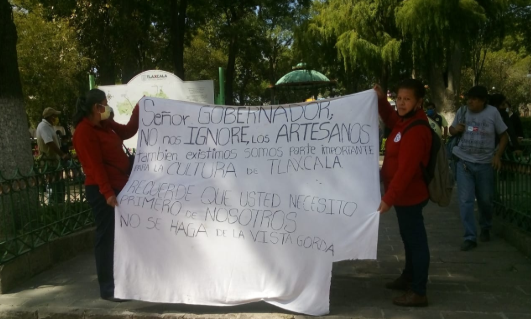 TLAXCALA
Señor GOBERNADOR,
NO NOS IGNORE, LOS ARTESANOS
también existimos somos parte importante
PARA LA CULTURA DE TLAXCALA
RECUERDE QUE USTED NECESITO
PRIMERO DE NOSOTROS
NO SE HAGA DE LA VISTA GORDA